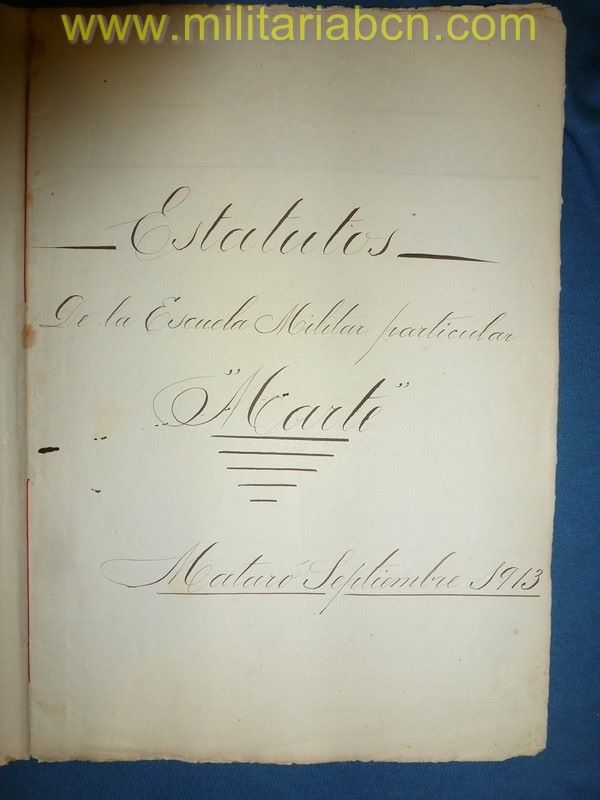 www.militariabcn.com
Estatutos
De la Escuela Militar particular
"Marte"
Mataró Septiembre 1913